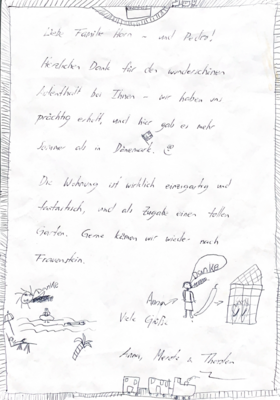 Liebe Familie Horn – und Pedro!
Herzlichen Dank für den wunderschönen
Aufenthalt bei Ihnen – wir haben uns
prächtig erholt, und hier gab es mehr
Sonne als in Dänemark.
Die Wohnung ist wirklich einzigartig und
fantastisch, und als Zugabe einen tollen
Garten. Gerne kommen wir wieder nach
Frauenstein.
Danke
Danke
Viele Grüße